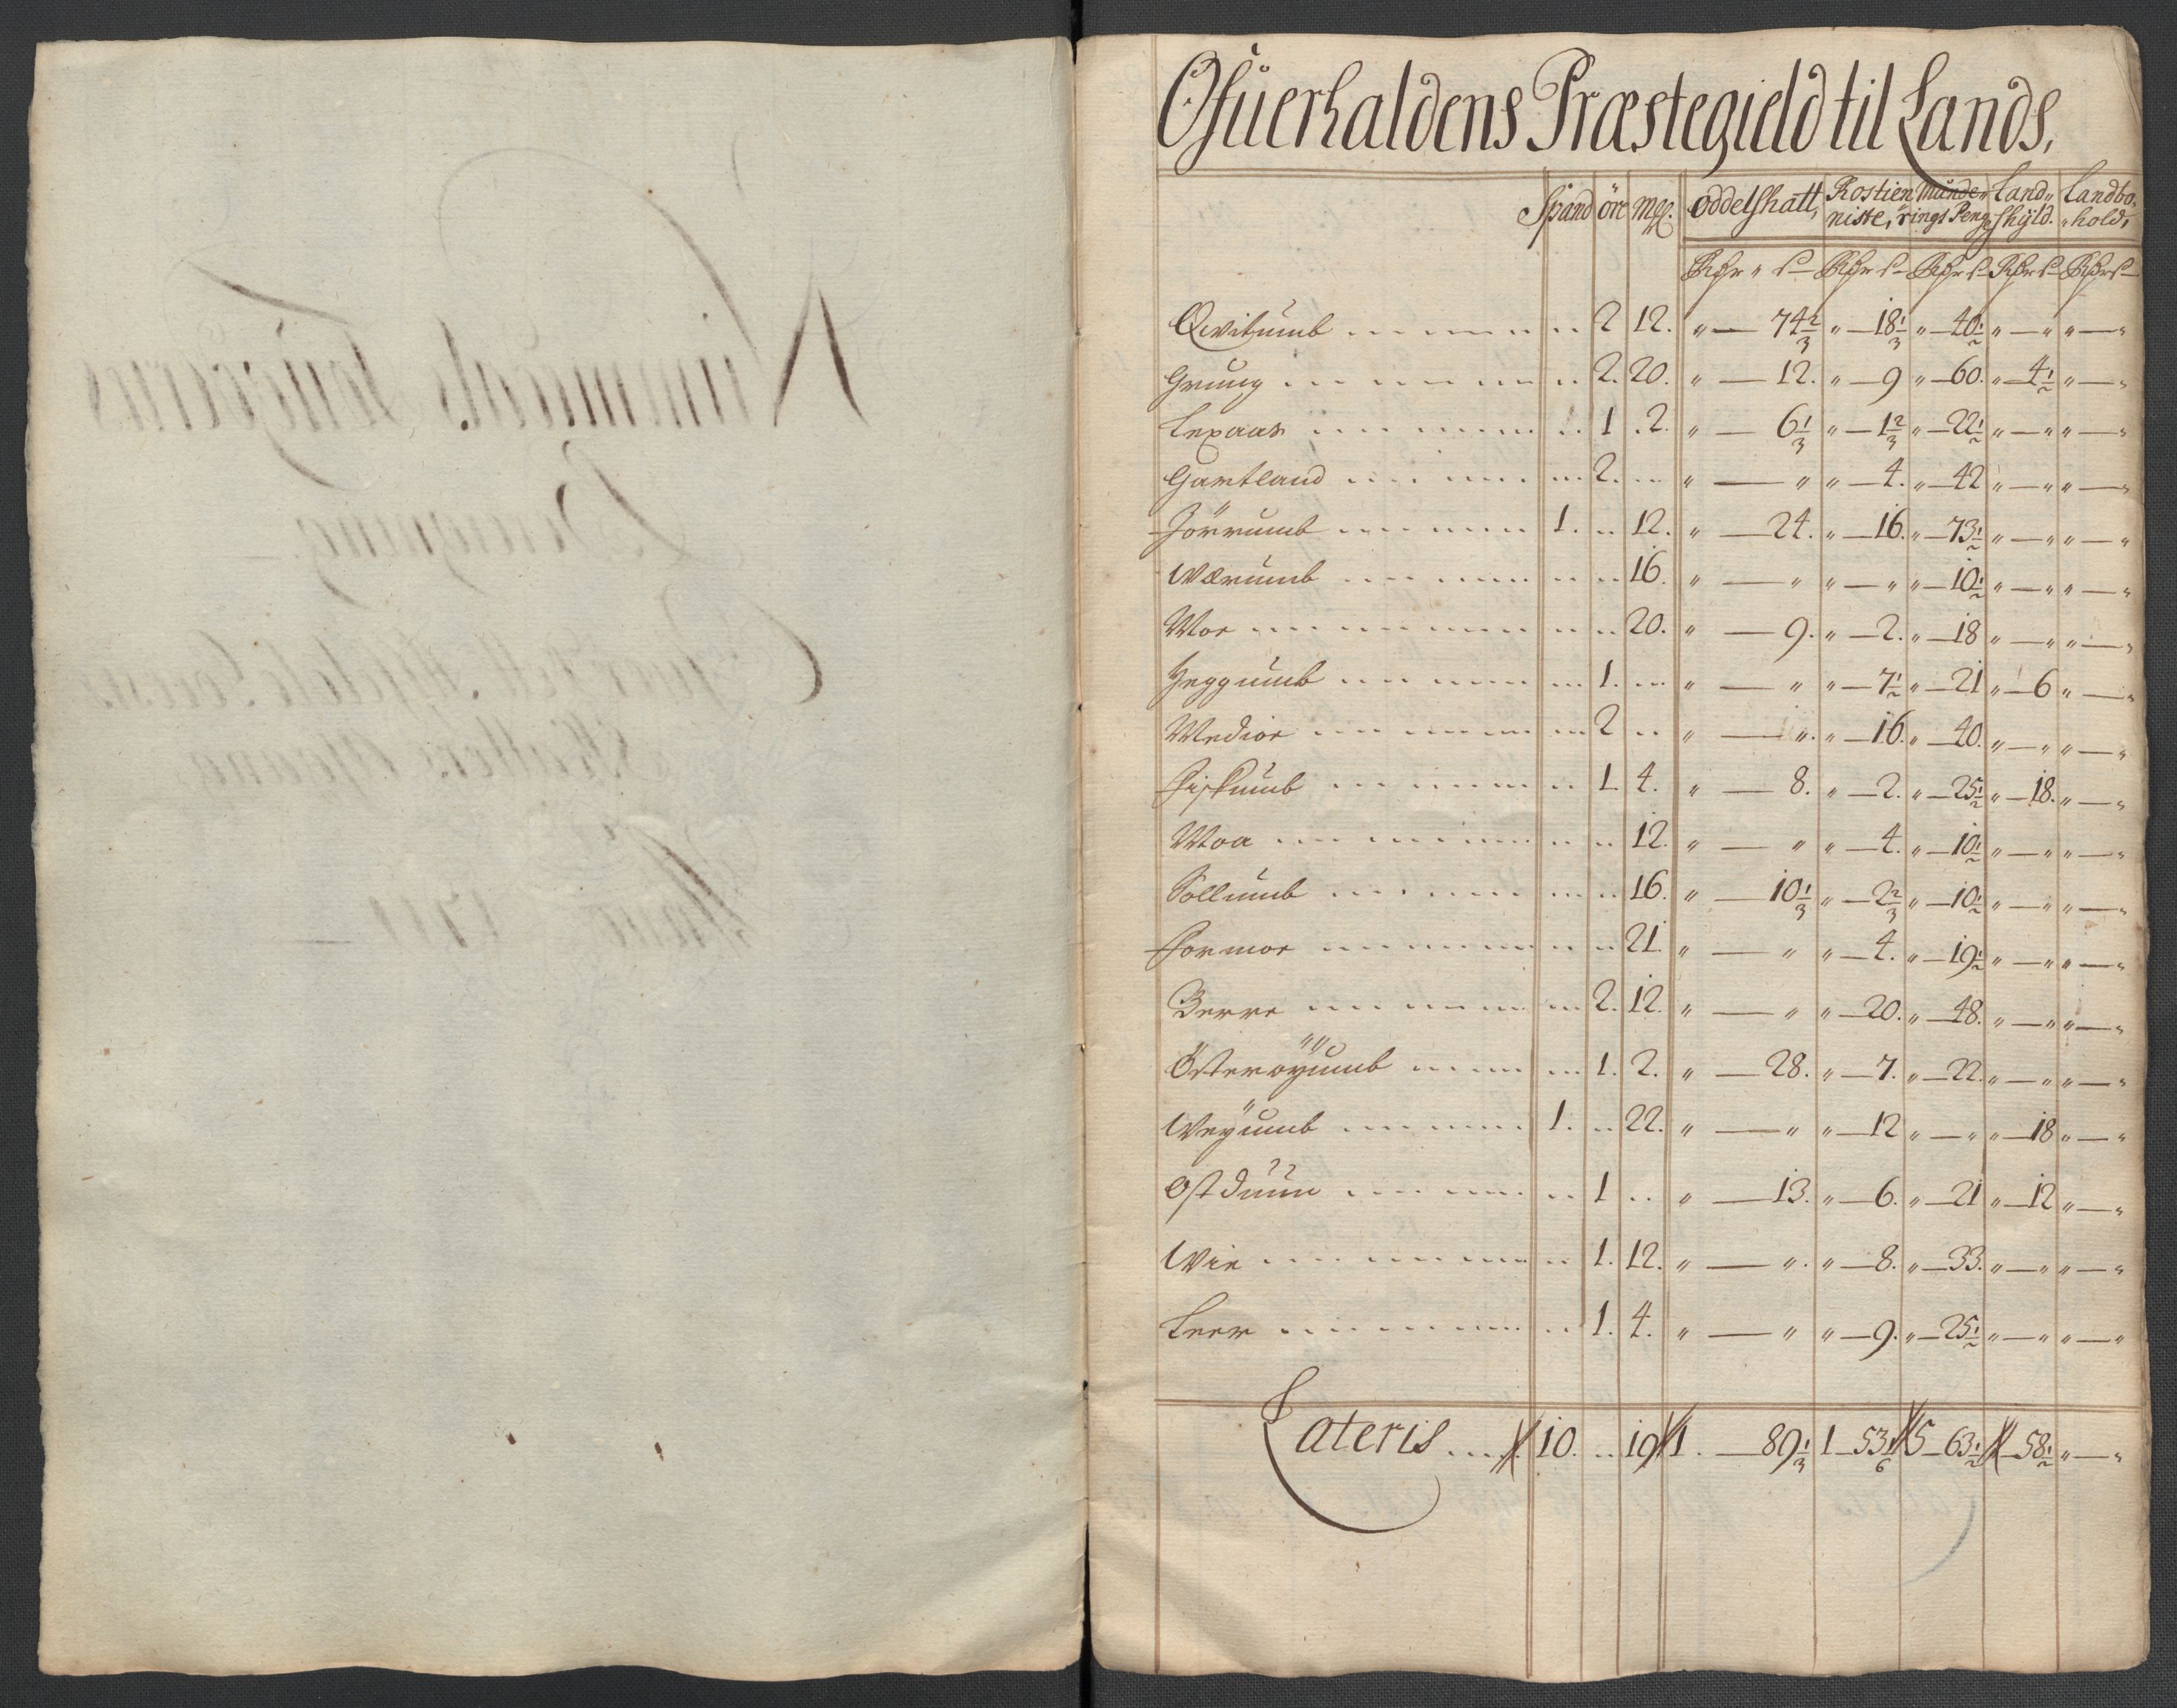 Ofuerhaldens Præstegield til Lands,
Spand öre Mℓ. oddelskatt, Rostien niste, Munde rings Penge Land skyld. Landbo hold,
Rdr „ s Rdr s Rdr s Rdr s Rdr s
Qvitumb 2 12. „ — 74 2/3 „ — 18 1/3 „ — 40 1/2 „ — „ „ — „
Grung 2. 20. „ — 12. „ — 9 „ — 60. „ — 4 1/2 „ — „
Lexaas 1 2. „ — 6 1/3 „ — 1 2/3 „ — 22 1/2 „ — „ „ — „
Gartland 2. „ — „ „ — 4. „ — 42 „ — „ „ — „
Jörrumb 1. 12. „ — 24. „ — 16. „ — 73 1/2 „ — „ „ — „
Wærumb 16. „ — „ „ — „ „ — 10 1/2 „ — „ „ — „
Moe 20. „ — 9. „ — 2. „ — 18 „ — „ „ — „
Heggumb 1. „ — „ „ — 7 1/2 „ — 21 „ — 6 „ — „
Medior 2 „ — „. „ — 16. „ — 40. „ — „ „ — „
Fiskumb 1. 4. „ — 8. „ — 2. „ — 25 1/2 „ — 18. „ — „
Moa 12. „ — „ „ — 4. „ — 10 1/2 „ — „ „ — „
Sollumb 16. „ — 10 1/3 „ — 2 2/3 „ — 10 1/2 „ — „ „ — „
Formoe 21. „ — „ „ — 4. „ — 19 1/2 „ — „ „ — „
Berre 2. 12. „ — „ „ — 20. „ — 48. „ — „ „ — „
Österøÿumb 1. 2. „ — 28. „ — 7. „ — 22. „ — „ „ — „
Weÿumb 1. 22. „ — „ „ — 12 „ — „ „ — 18 „ — „
Ostduun 1 „ — 13. „ — 6. „ — 21 „ — 12 „ — „
Wie 1. 12. „ — „. „ — 8. „ — 33. „ — „ „ — „
Leer 1. 4. „ — „ „ — 9. „ — 25 1/2 „ — „ „ — „
Lateris 10. 19 1. — 89 1/3 1 — 53 1/6 5 — 63 1/2 — 58 1/2 „ — „